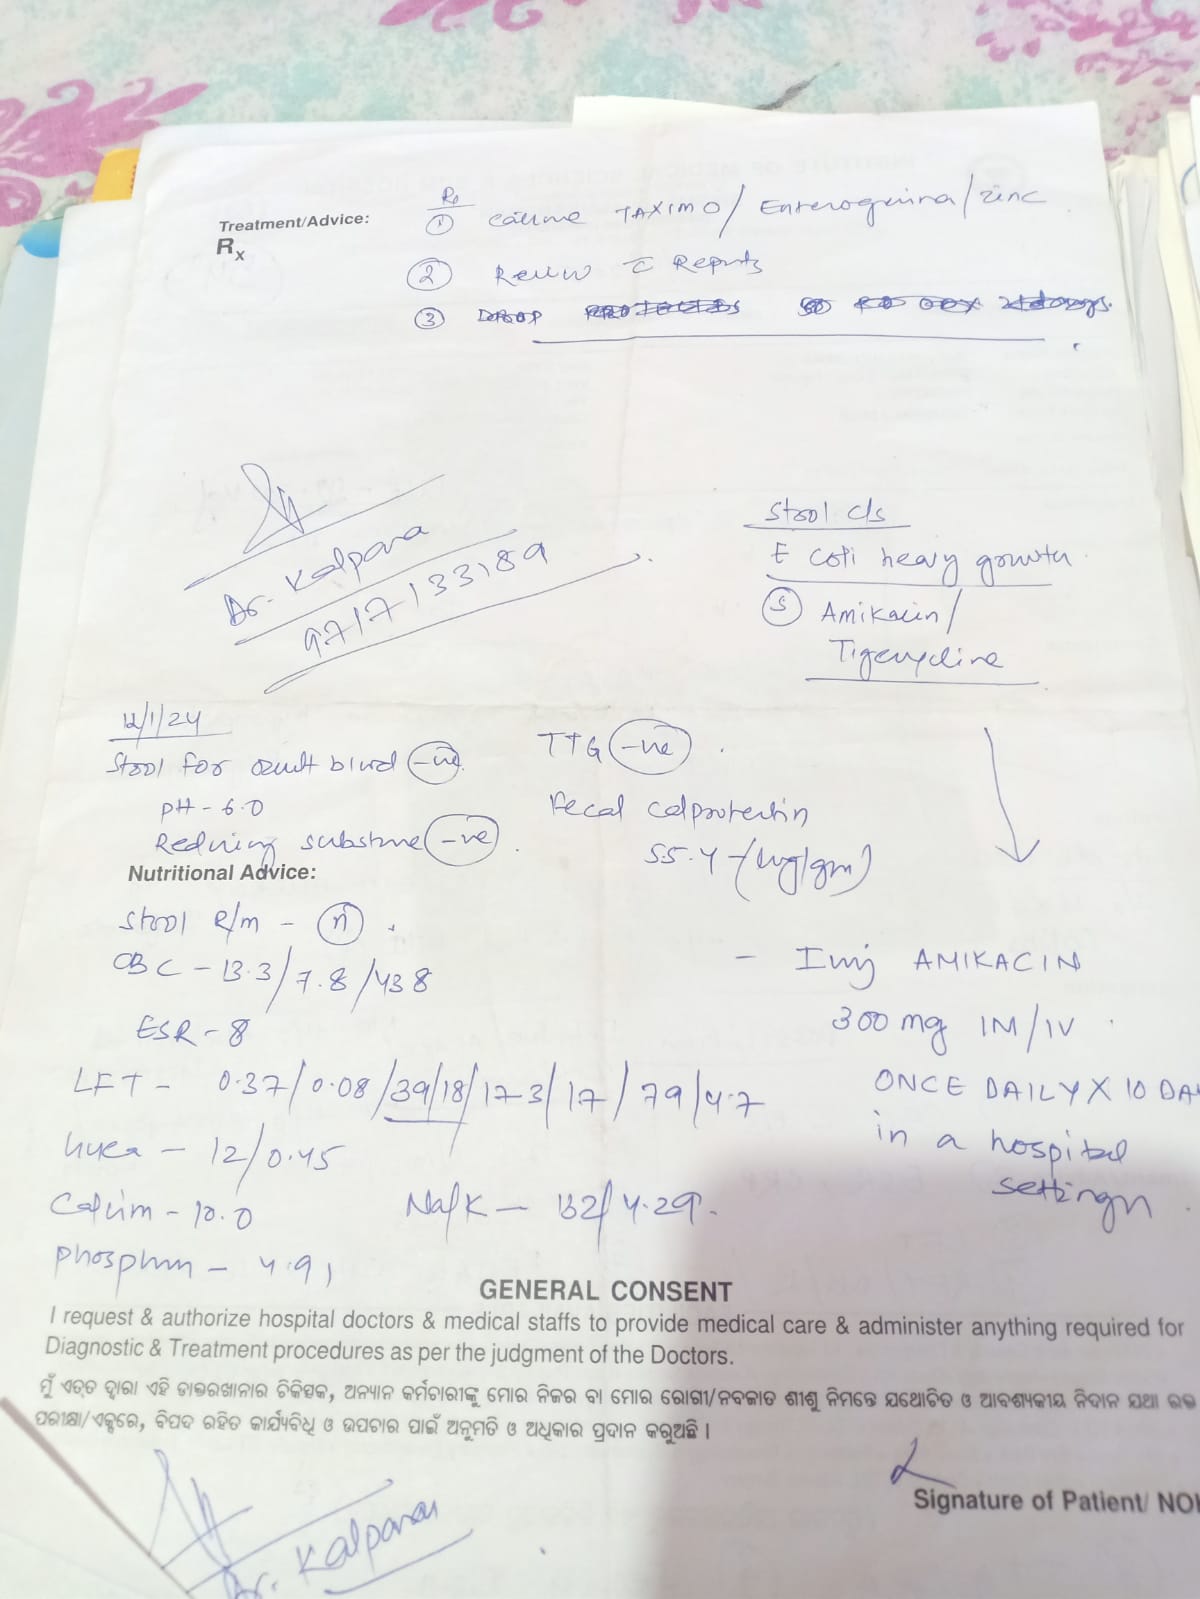 Treatment/Advice:
Rx
Rx
① TAXIMO / Enteroguina / zinc
② Review c̄ Reports
③
Dr. Kalpana
9717133189
Stool c/s
E Coli heavy growth
Ⓢ Amikacin/
Tigecycline
12/1/24
Stool for occult blood -ve
pH - 6.0
Reducing substance -ve
TTG -ve
Fecal calprotectin
55.4 (ug/gm)
Nutritional Advice:
Stool R/m - n
CBC - 13.3/7.8/438
ESR - 8
LFT - 0.37/0.08/39/18/173/17/79/4.7
Urea - 12/0.45
Calcium - 10.0
Na/K - 132/4.29
Phosphrn - 4.91
- Inj AMIKACIN
300 mg IM/IV
ONCE DAILY X 10 DA
in a hospital
setting
GENERAL CONSENT
I request & authorize hospital doctors & medical staffs to provide medical care & administer anything required for
Diagnostic & Treatment procedures as per the judgment of the Doctors.
ମୁଁ ଏତଦ୍ ଦ୍ୱାରା ଏହି ଡାକ୍ତରଖାନାର ଚିକିତ୍ସକ, ଅନ୍ୟାନ କର୍ମଚାରୀଙ୍କୁ ମୋର ନିଜର ବା ମୋର ରୋଗୀ/ନବଜାତ ଶୀଶୁ ନିମନ୍ତେ ଯଥୋଚିତ ଓ ଆବଶ୍ୟକୀୟ ନିଦାନ ଯଥା
ପରୀକ୍ଷା/ଏକ୍ସରେ, ବିପଦ ରହିତ କାର୍ଯ୍ୟବିଧି ଓ ଉପଚାର ପାଇଁ ଅନୁମତି ଓ ଅଧିକାର ପ୍ରଦାନ କରୁଅଛି ।
Signature of Patient/ NOK
Dr. Kalpana